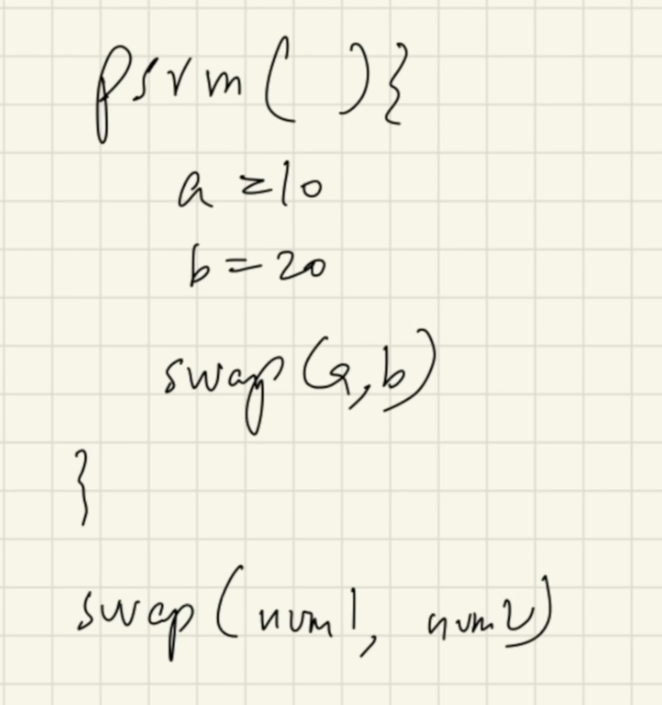 psvm( ){
a = 10
b = 20
swap(a,b)
}
swap(num1, num2)